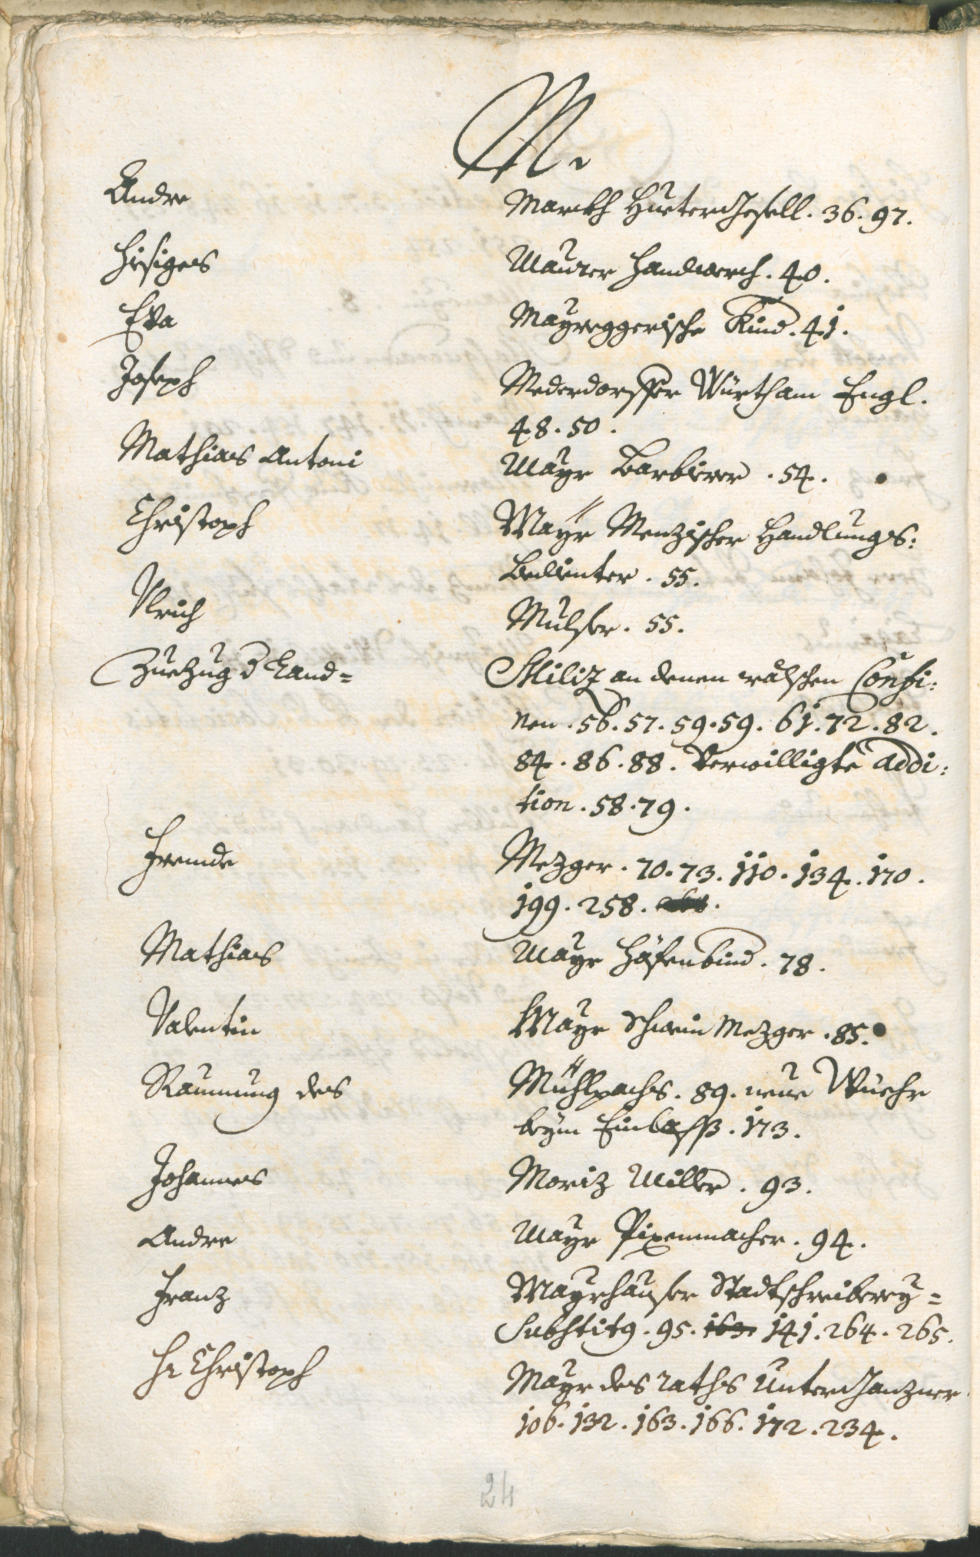 M.
Andre Markh Huetergesell. 36. 97.
hisiges Maurer Handwerch. 40.
Eva Mayreggerische Kind. 41.
Joseph Mederdorffer Würth am Engl.
48. 50.
Mathias Antoni Mayr Barbierer. 54.
Christoph Mayr Menzischer Handlungs:
Bedienter. 55.
Ulrich Mulser. 55.
Zuezug d Land= Miliz an denen wälschen Confi:
nen. 56. 57. 59. 59. 61. 72. 82.
84. 86. 88. Verwilligte addi:
tion. 58. 79.
Fremde Mezger. 70. 73. 110. 134. 170.
199. 258.
Mathias Mayr Häfenbind. 78.
Valentin Mayr Schwein Mezger. 85.
Raumung des Mühlpachs. 89. neue Wuehr
beym Einlass. 173.
Johannes Moriz Miller. 93.
Andre Mayr Pixenmacher. 94.
Franz Mayrhauser Stadtschreiberey=
Substit9. 95. 163. 141. 264. 265.
Hr Christoph Mayr des raths Unterganzner
106. 132. 163. 166. 172. 234.
24